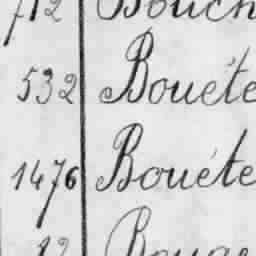 712 Bouch
532 Bouéte
1476 Bouéte
12 Bouge